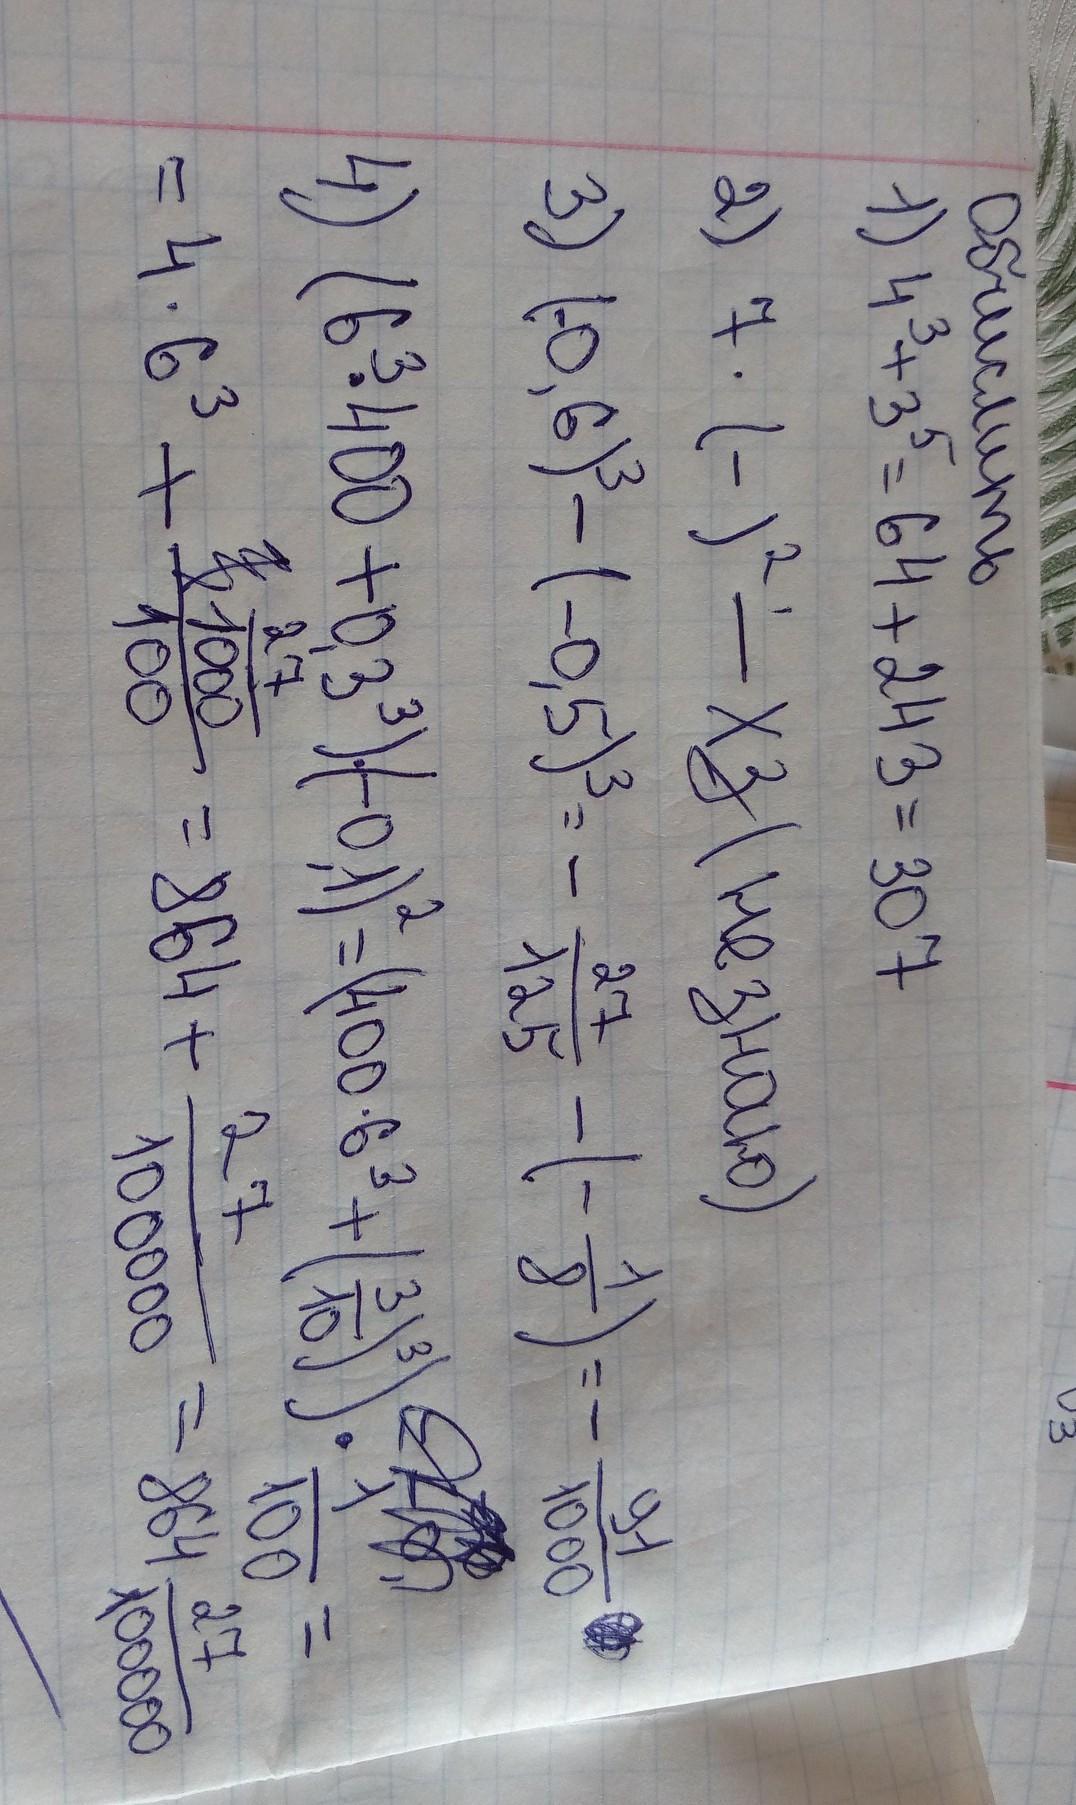 Обчислить
1) 4³+3⁵=64+243=307
2) 7·(-)² — хз (не знаю)
3) (-0,6)³-(-0,5)³=-27/125-(-1/8)=-91/1000
4) (6³·400+0,3³)·(-0,1)²=(400·6³+(3/10)³)·1/100=
=4·6³+27/1000/100=864+27/100000=864 27/100000